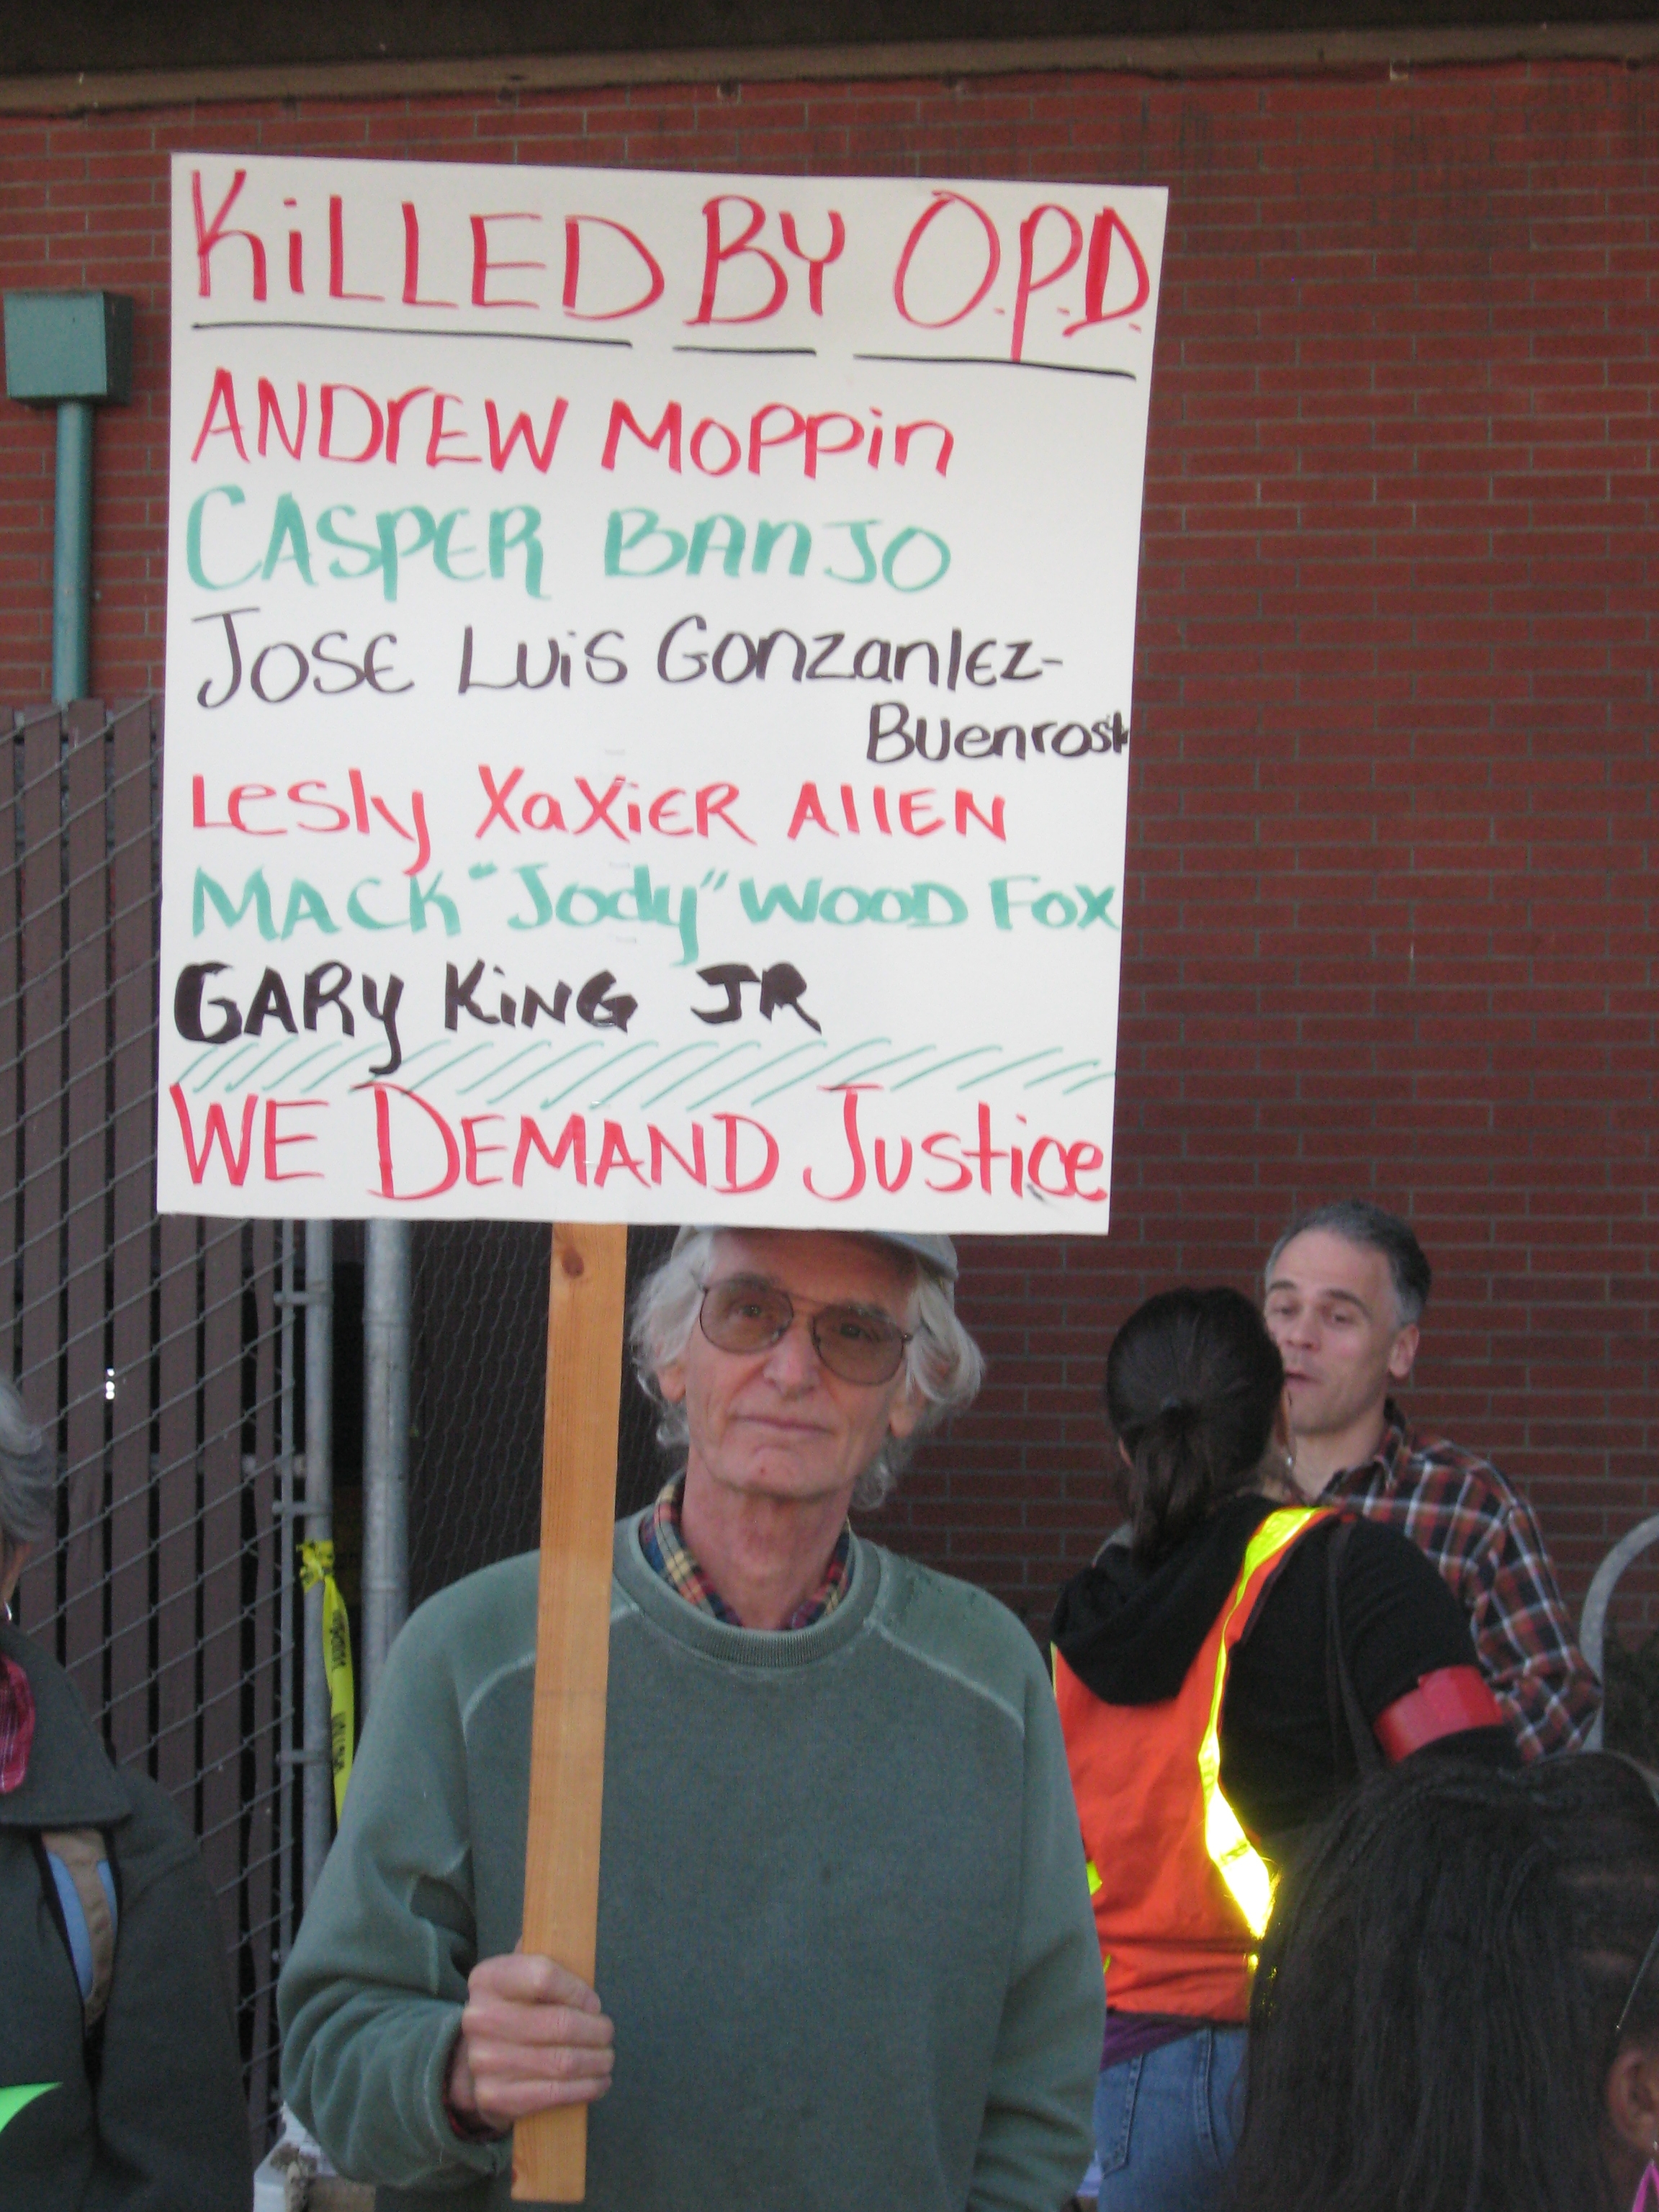 KiLLED BY O.P.D.
ANDrEW MOPPin
CASPER BANJO
JOSE LUiS GONZanlEZ-
BUenrost
Lesly XaXiER AllEN
MACK "Jody" WOOD FOX
GARY KiNG JR
WE DEMAND Justice